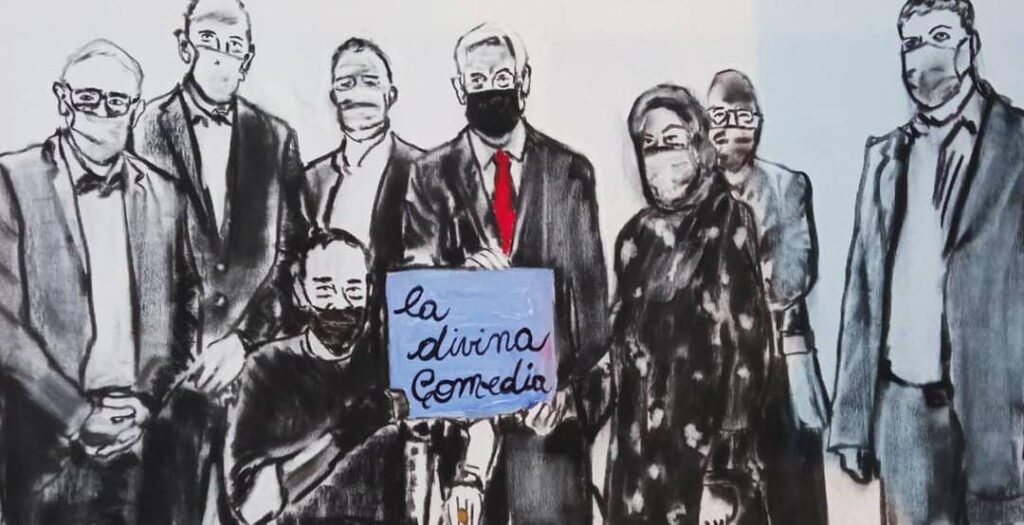 la
divina
Çomedia